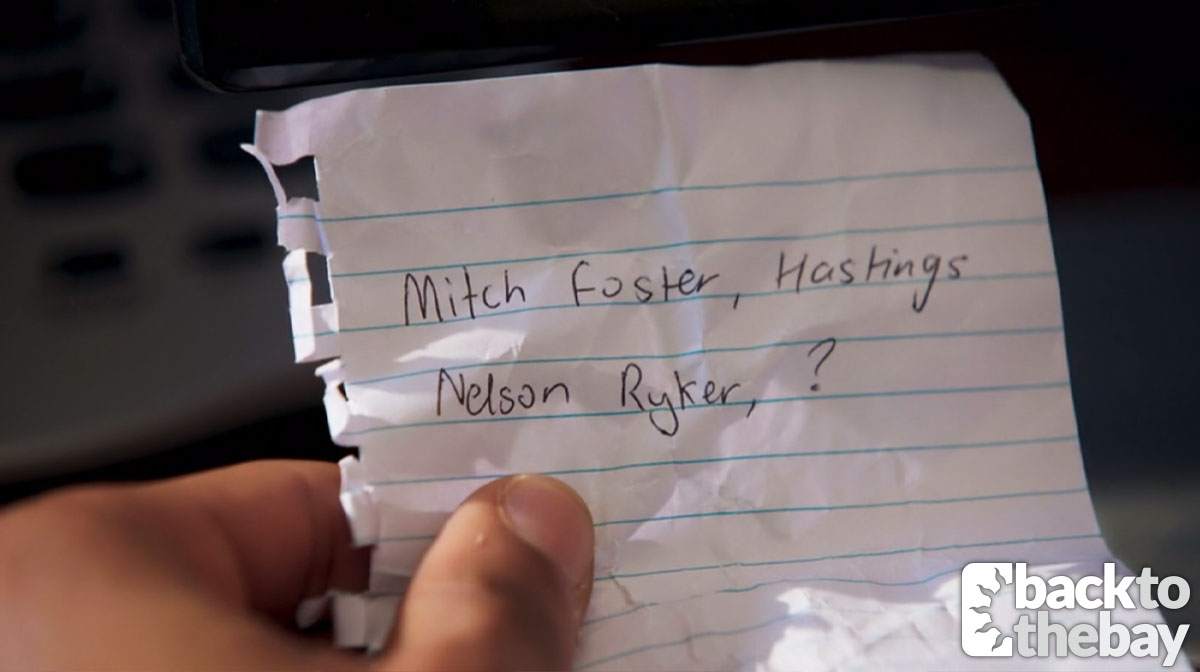 Mitch Foster, Hastings
Nelson Ryker, ?
backto
thebay